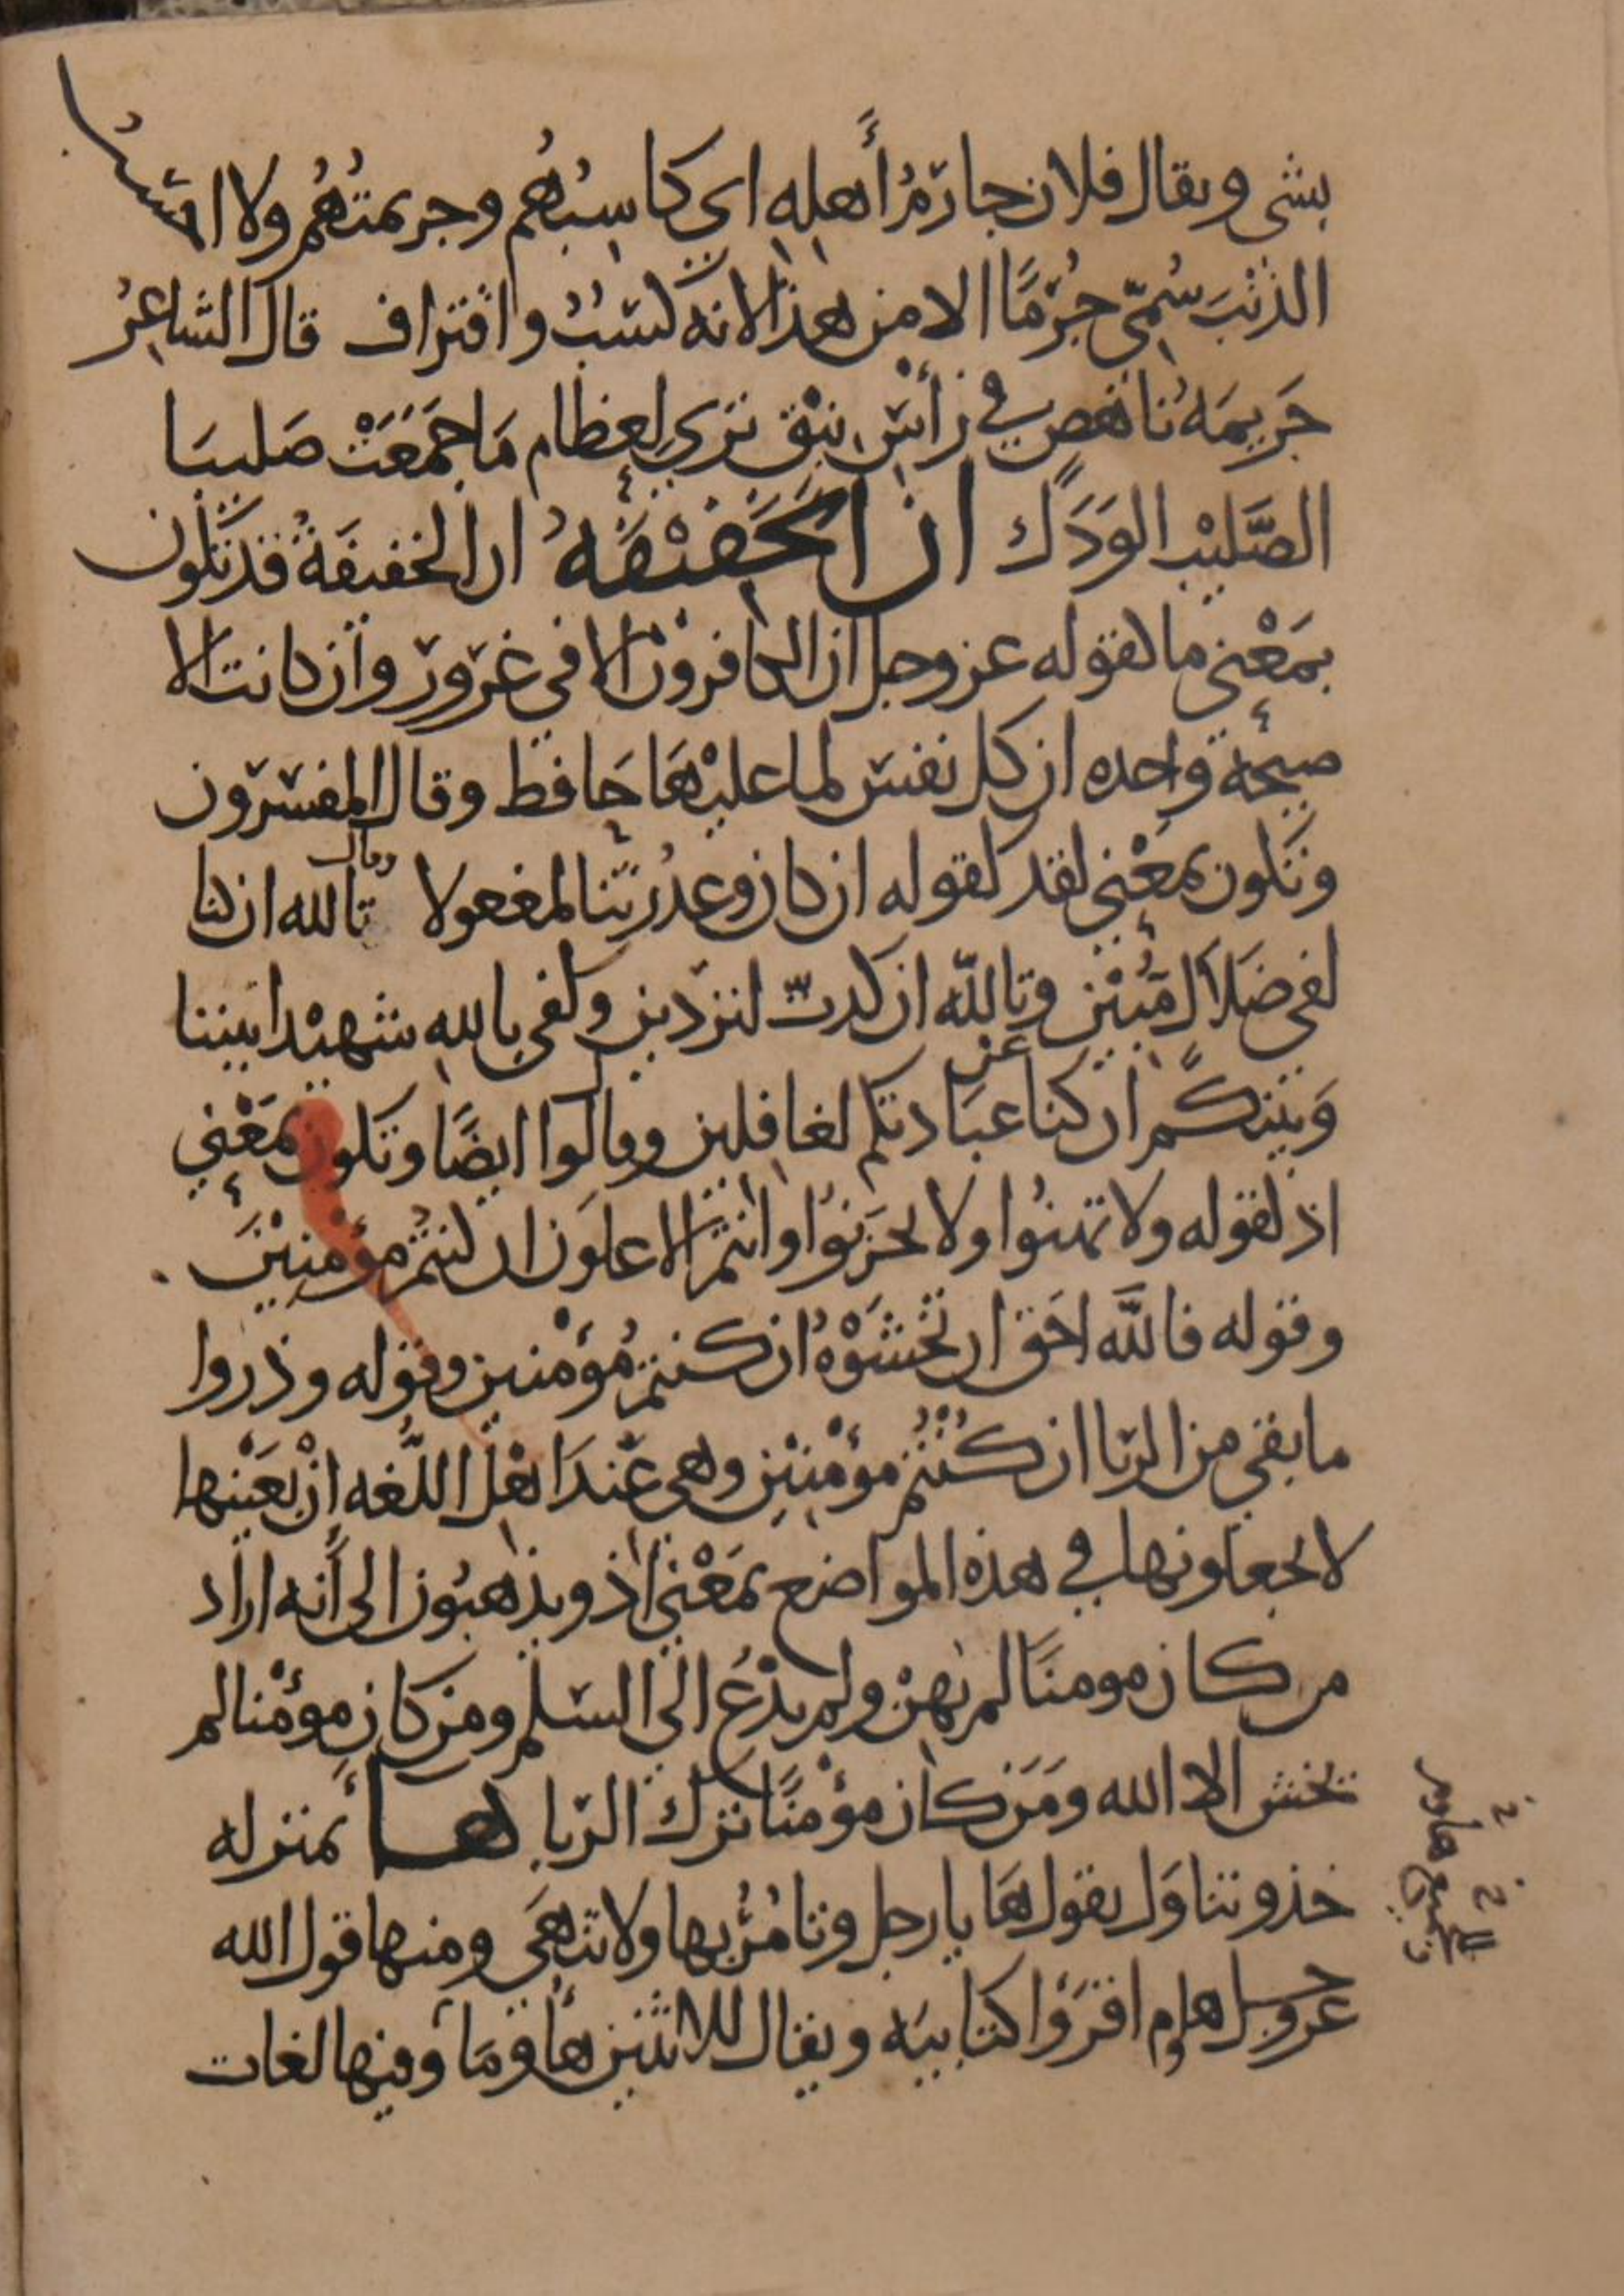 بشي ويقال فلان جارم أهله اي كاسبهم وجريمتهم ولا احسب
الذنب سمي جرما الا من هذا لانه كسب واقتراف قال الشاعر
جريمة ناهض في رأس نيق تري لعظام ما جمعت صليبا
الصليب الودك ان الخفيفه ان الخفيفة قد تكون
بمعني ما كقوله عز وجل ان الكافرون الا في غرور وان كانت الا
صيحة واحده ان كل نفس لما عليها حافظ وقال المفسرون
وتكون بمعني لقد كقوله ان كان وعد ربنا لمفعولا وقال تالله ان كنا
لفي ضلال مبين وتالله ان كدت لتردين وكفي بالله شهيدا بيننا
وبينكم ان كنا عن عبادتكم لغافلين وقالوا ايضا وتكون بمعني
اذ كقوله ولا تهنوا ولا تحزنوا وانتم الاعلون ان كنتم مؤمنين
وقوله فالله احق ان تخشوه ان كنتم مؤمنين وقوله وذروا
ما بقي من الربا ان كنتم مؤمنين وهي عند اهل اللغه ان بعينها
لا يجعلونها في هذه المواضع بمعني اذ ويذهبون الى أنه اراد
من كان مومنا لم يهن ولم يدع الى السلم ومن كان مؤمنا لم
يخش الا الله ومن كان مؤمنا ترك الربا ها بمنزله
خذ وتناول يقول ها يا رجل وتأمر بها ولا تنهى ومنها قول الله
عز وجل هاوم اقرؤا كتابيه ويقال للاثنين هاؤما وفيها لغات